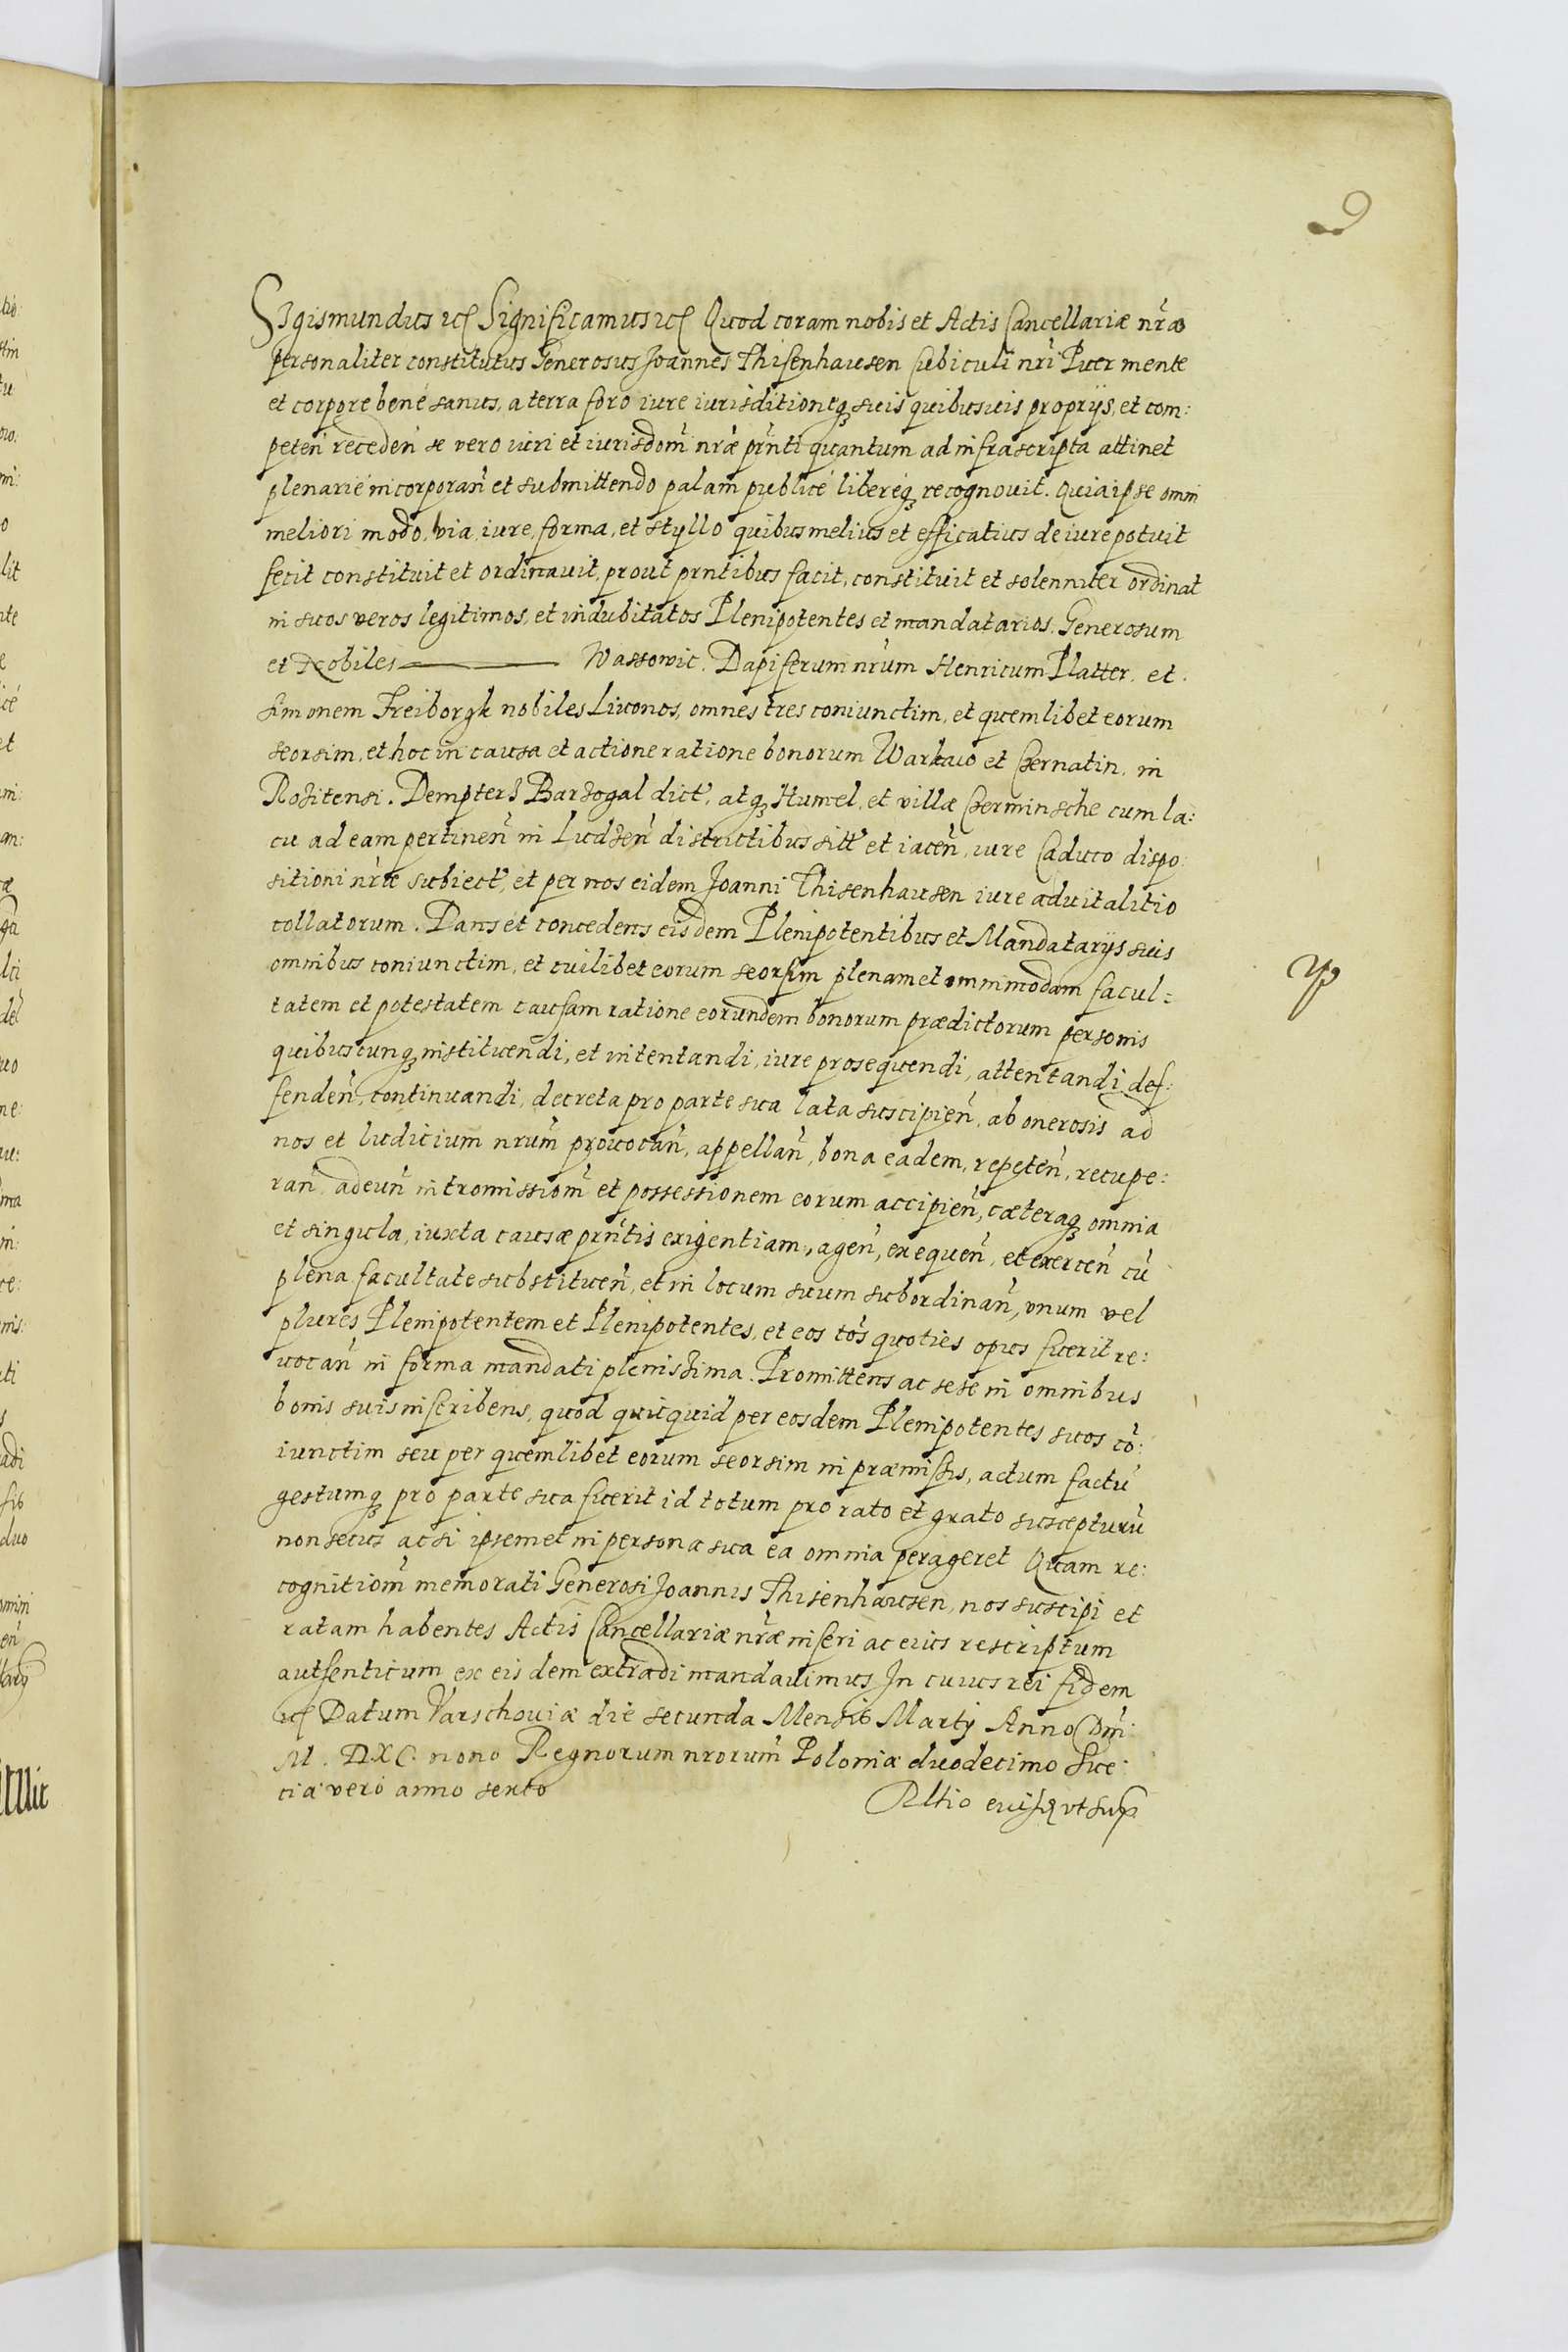 9
Sigismundus etc Significamus etc Quod coram nobis et Actis Cancellariæ nr̃æ
personaliter constitutus Generosus Joannes Thisenhausen Cubiculi nr̃i Puer mente
et corpore bené sanus, a terra foro iure iurisditioneq; suis quibusuis proprijs, et com:
peteñ recedeñ se vero iuri et iurisdom̃ nr̃æ pr̃nti quantum ad infrascripta attinet
plenarié incorporañ et submittendo palam publicé liberéq; recognouit. Quia ipse omni
meliori modo, via, iure, forma, et styllo quibus melius et efficatius de iure potuit
fecit constituit et ordinauit, prout prntibus facit, constituit et solenniter ordinat
in suos veros legitimos, et indubitatos Plenipotentes et mandatarios. Generosum
et Nobiles ——— Wassowic. Dapiferum nr̃um Henricum Platter. et.
Simonem Freiborgk nobiles Liuonos, omnes tres coniunctim, et quemlibet eorum
seorsim, et hoc in causa et actione ratione bonorum Warkauo et Czernatin, in
Rositensi. Dempters Barzogal dict', atq; Humel, et villæ Czerminsche cum la:
cu ad eam pertineñ in Ludzeñ districtibus sitt' et iaceñ, iure Caduco dispo:
sitioni nr̃æ subiect', et per nos eidem Joanni Thisenhausen iure aduitalitio
collatorum. Dans et concedens eisdem Plenipotentibus et Mandatarijs suis
omnibus coniunctim, et cuilibet eorum seorsim plenam et ommimodam facul:
tatem et potestatem causam ratione eorundem bonorum prædictorum personis
quibuscunq; instituendi, et intentandi, iure prosequendi, attentandi def:
fendeñ, continuandi, decreta pro parte sua lata suscipieñ, ab onerosis ad
nos et Iudicium nrum̃ prouocañ, appellañ, bona eadem, repeteñ, recupe:
rañ, adeuñ intromissiom̃ et possessionem eorum accipieñ, cæteraq; omnia
et singula, iuxta causæ pr̃ntis exigentiam, ageñ, exequeñ, et exerceñ cũ
plena facultate substitueñ, et in locum suum subordinañ, vnum vel
plures Plenipotentem et Plenipotentes, et eos tos̃ quoties opus fuerit re:
uocañ in forma mandati plenissima. Promittens ac sese in omnibus
bonis suis inscribens, quod quicquid per eosdem Plenipotentes suos cõ:
iunctim seu per quemlibet eorum seorsim in præmissis, actum factũ
gestumq; pro parte sua fuerit id totum pro rato et grato suscepturũ
non secus ac si ipsemet in persona sua ea omnia perageret Quam re:
cognitiom̃ memorati Generosi Joannis Thisenhausen, nos suscipi et
ratam habentes Actis Cancellariæ nr̃æ inseri ac eius rescriptum
autfenticum ex eisdem extradi mandauimus In cuius rei fidem
etc Datum Varschouiæ die secunda Mensis Martij Anno Dm̃:
M. D.XC. nono Regnorum nrorum̃ Poloniæ duodecimo Sue:
ciæ vero anno sexto
Rltio eiusd ut sup